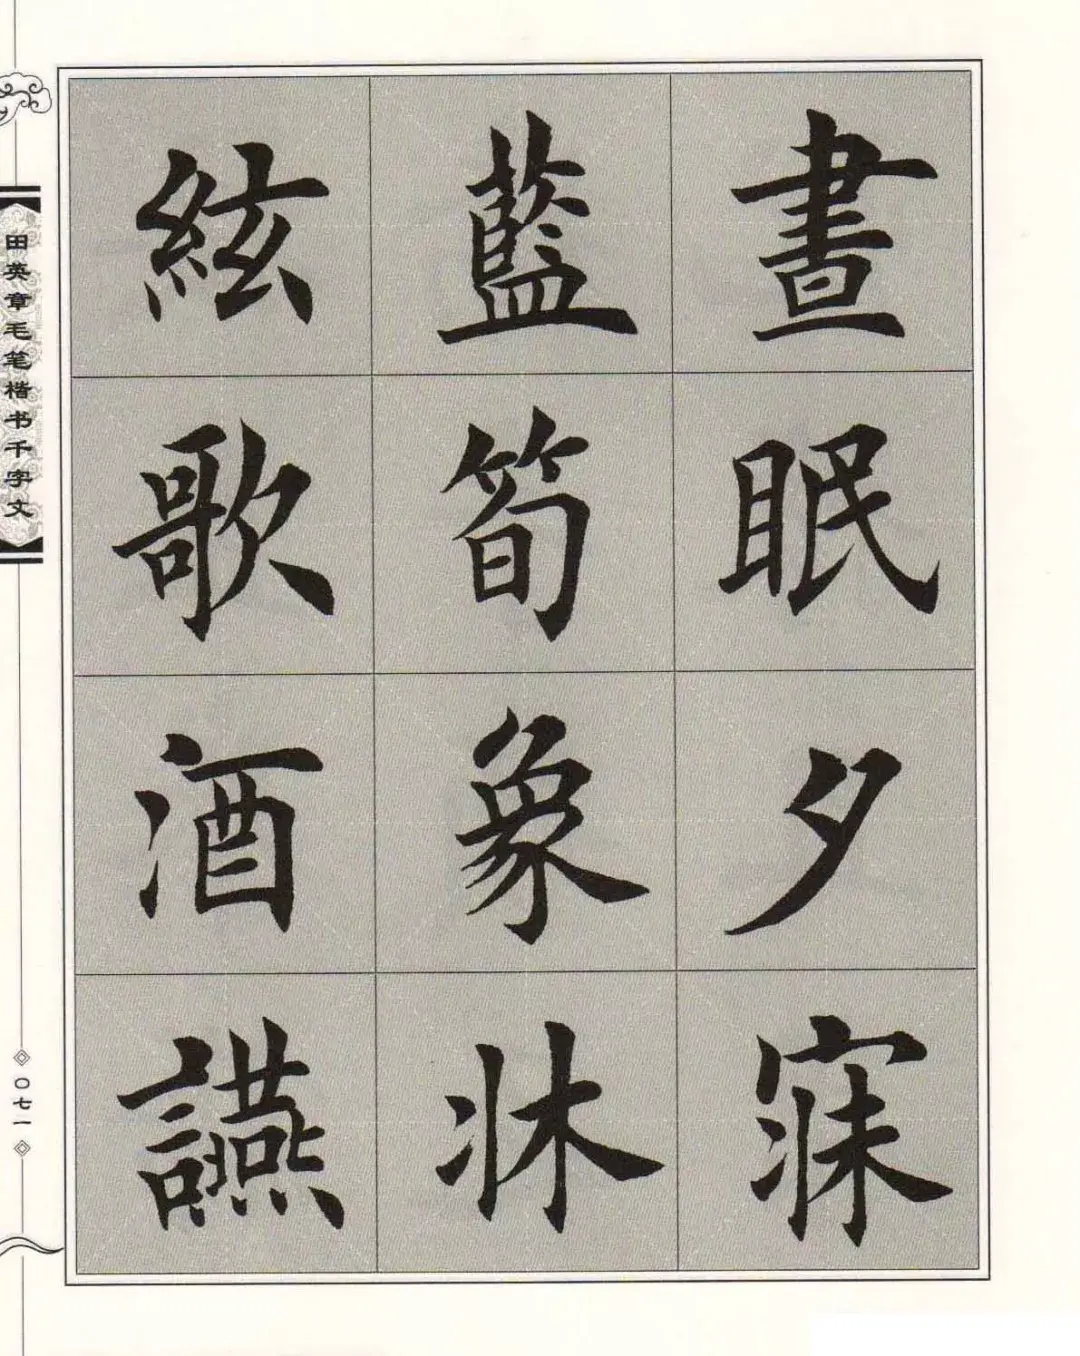 晝眠夕寐
藍筍象牀
絃歌酒讌
田英章毛笔楷书千字文
〇七一